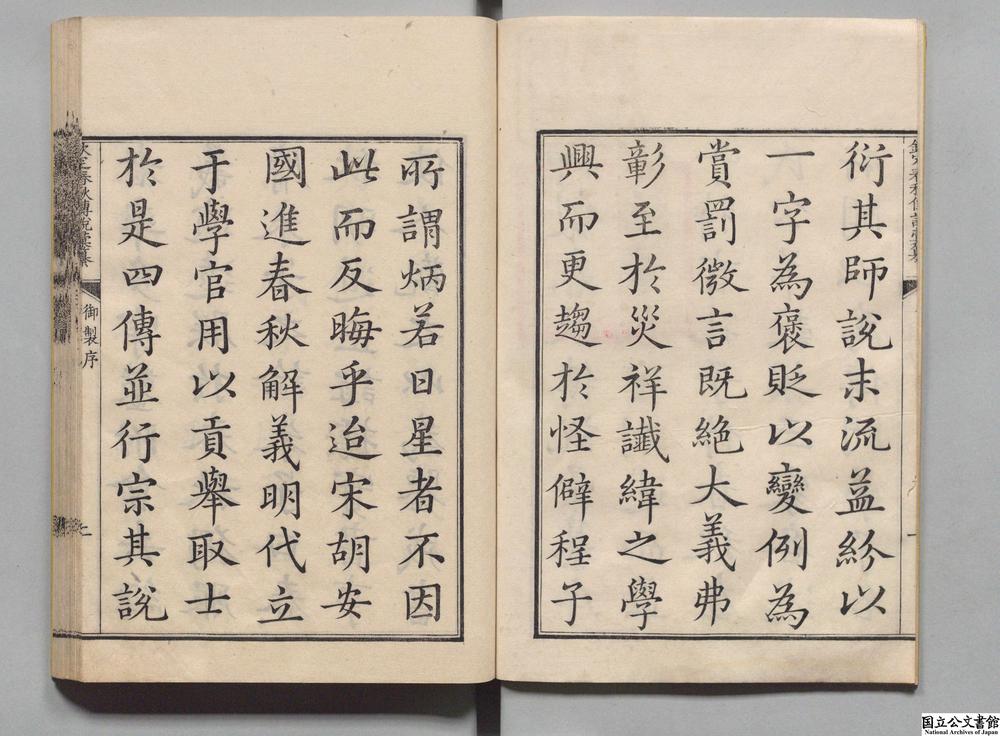 衍其師說末流益紛以
一字為褒貶以變例為
賞罰微言既絕大義弗
彰至於災祥讖緯之學
興而更趨於怪僻程子
所謂炳若日星者不因
此而反晦乎迨宋胡安
國進春秋解義明代立
于學官用以貢舉取士
於是四傳並行宗其說
欽定春秋傳說彙纂
御製序
国立公文書館
National Archives of Japan